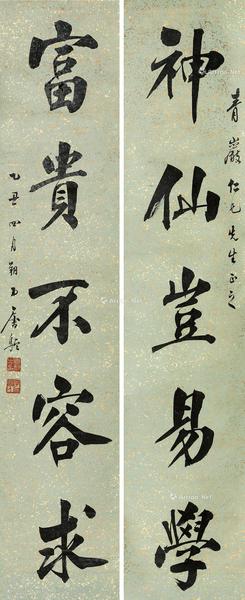 青巖仁兄先生正之
神仙豈易學
富貴不容求
乙丑四月朔日